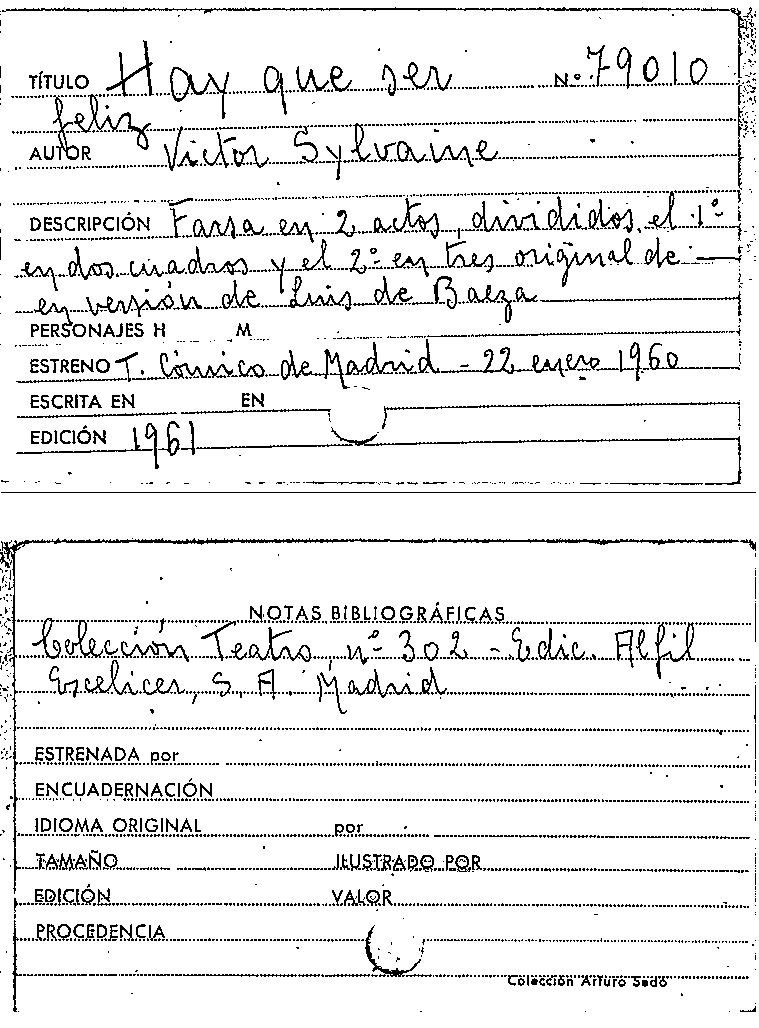 TÍTULO Hay que ser Nº 79010
feliz
AUTOR Victor Sylvaine
DESCRIPCIÓN Farsa en 2 actos, divididos, el 1º
en dos cuadros y el 2º en tres original de —
en versión de Luis de Baeza
PERSONAJES H M
ESTRENO T. Cómico de Madrid - 22 enero 1960
ESCRITA EN EN
EDICIÓN 1961
NOTAS BIBLIOGRÁFICAS
Colección Teatro, nº 302 - Edic. Alfil
Escelicer, S. A. Madrid
ESTRENADA por
ENCUADERNACIÓN
IDIOMA ORIGINAL por
TAMAÑO ILUSTRADO POR
EDICIÓN VALOR
PROCEDENCIA
Colección Arturo Sedó